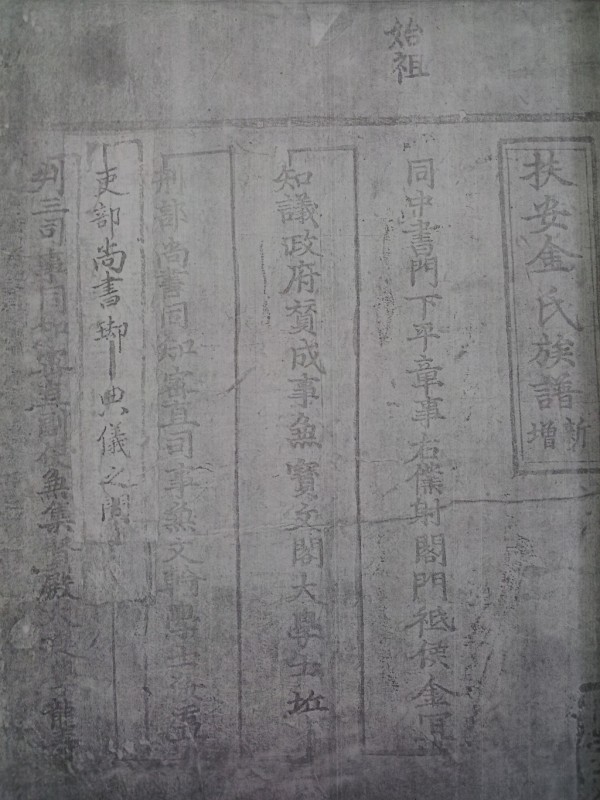 始祖
扶安金氏族譜 新增
同中書門下平章事右僕射閣門祗侯金
知議政府賛成事兼寳文閣大學士坵
刑部尚書同知密直司事兼文翰學士汝盂
吏部尚書 典儀之
判三司事同知密直 使兼集賢殿大